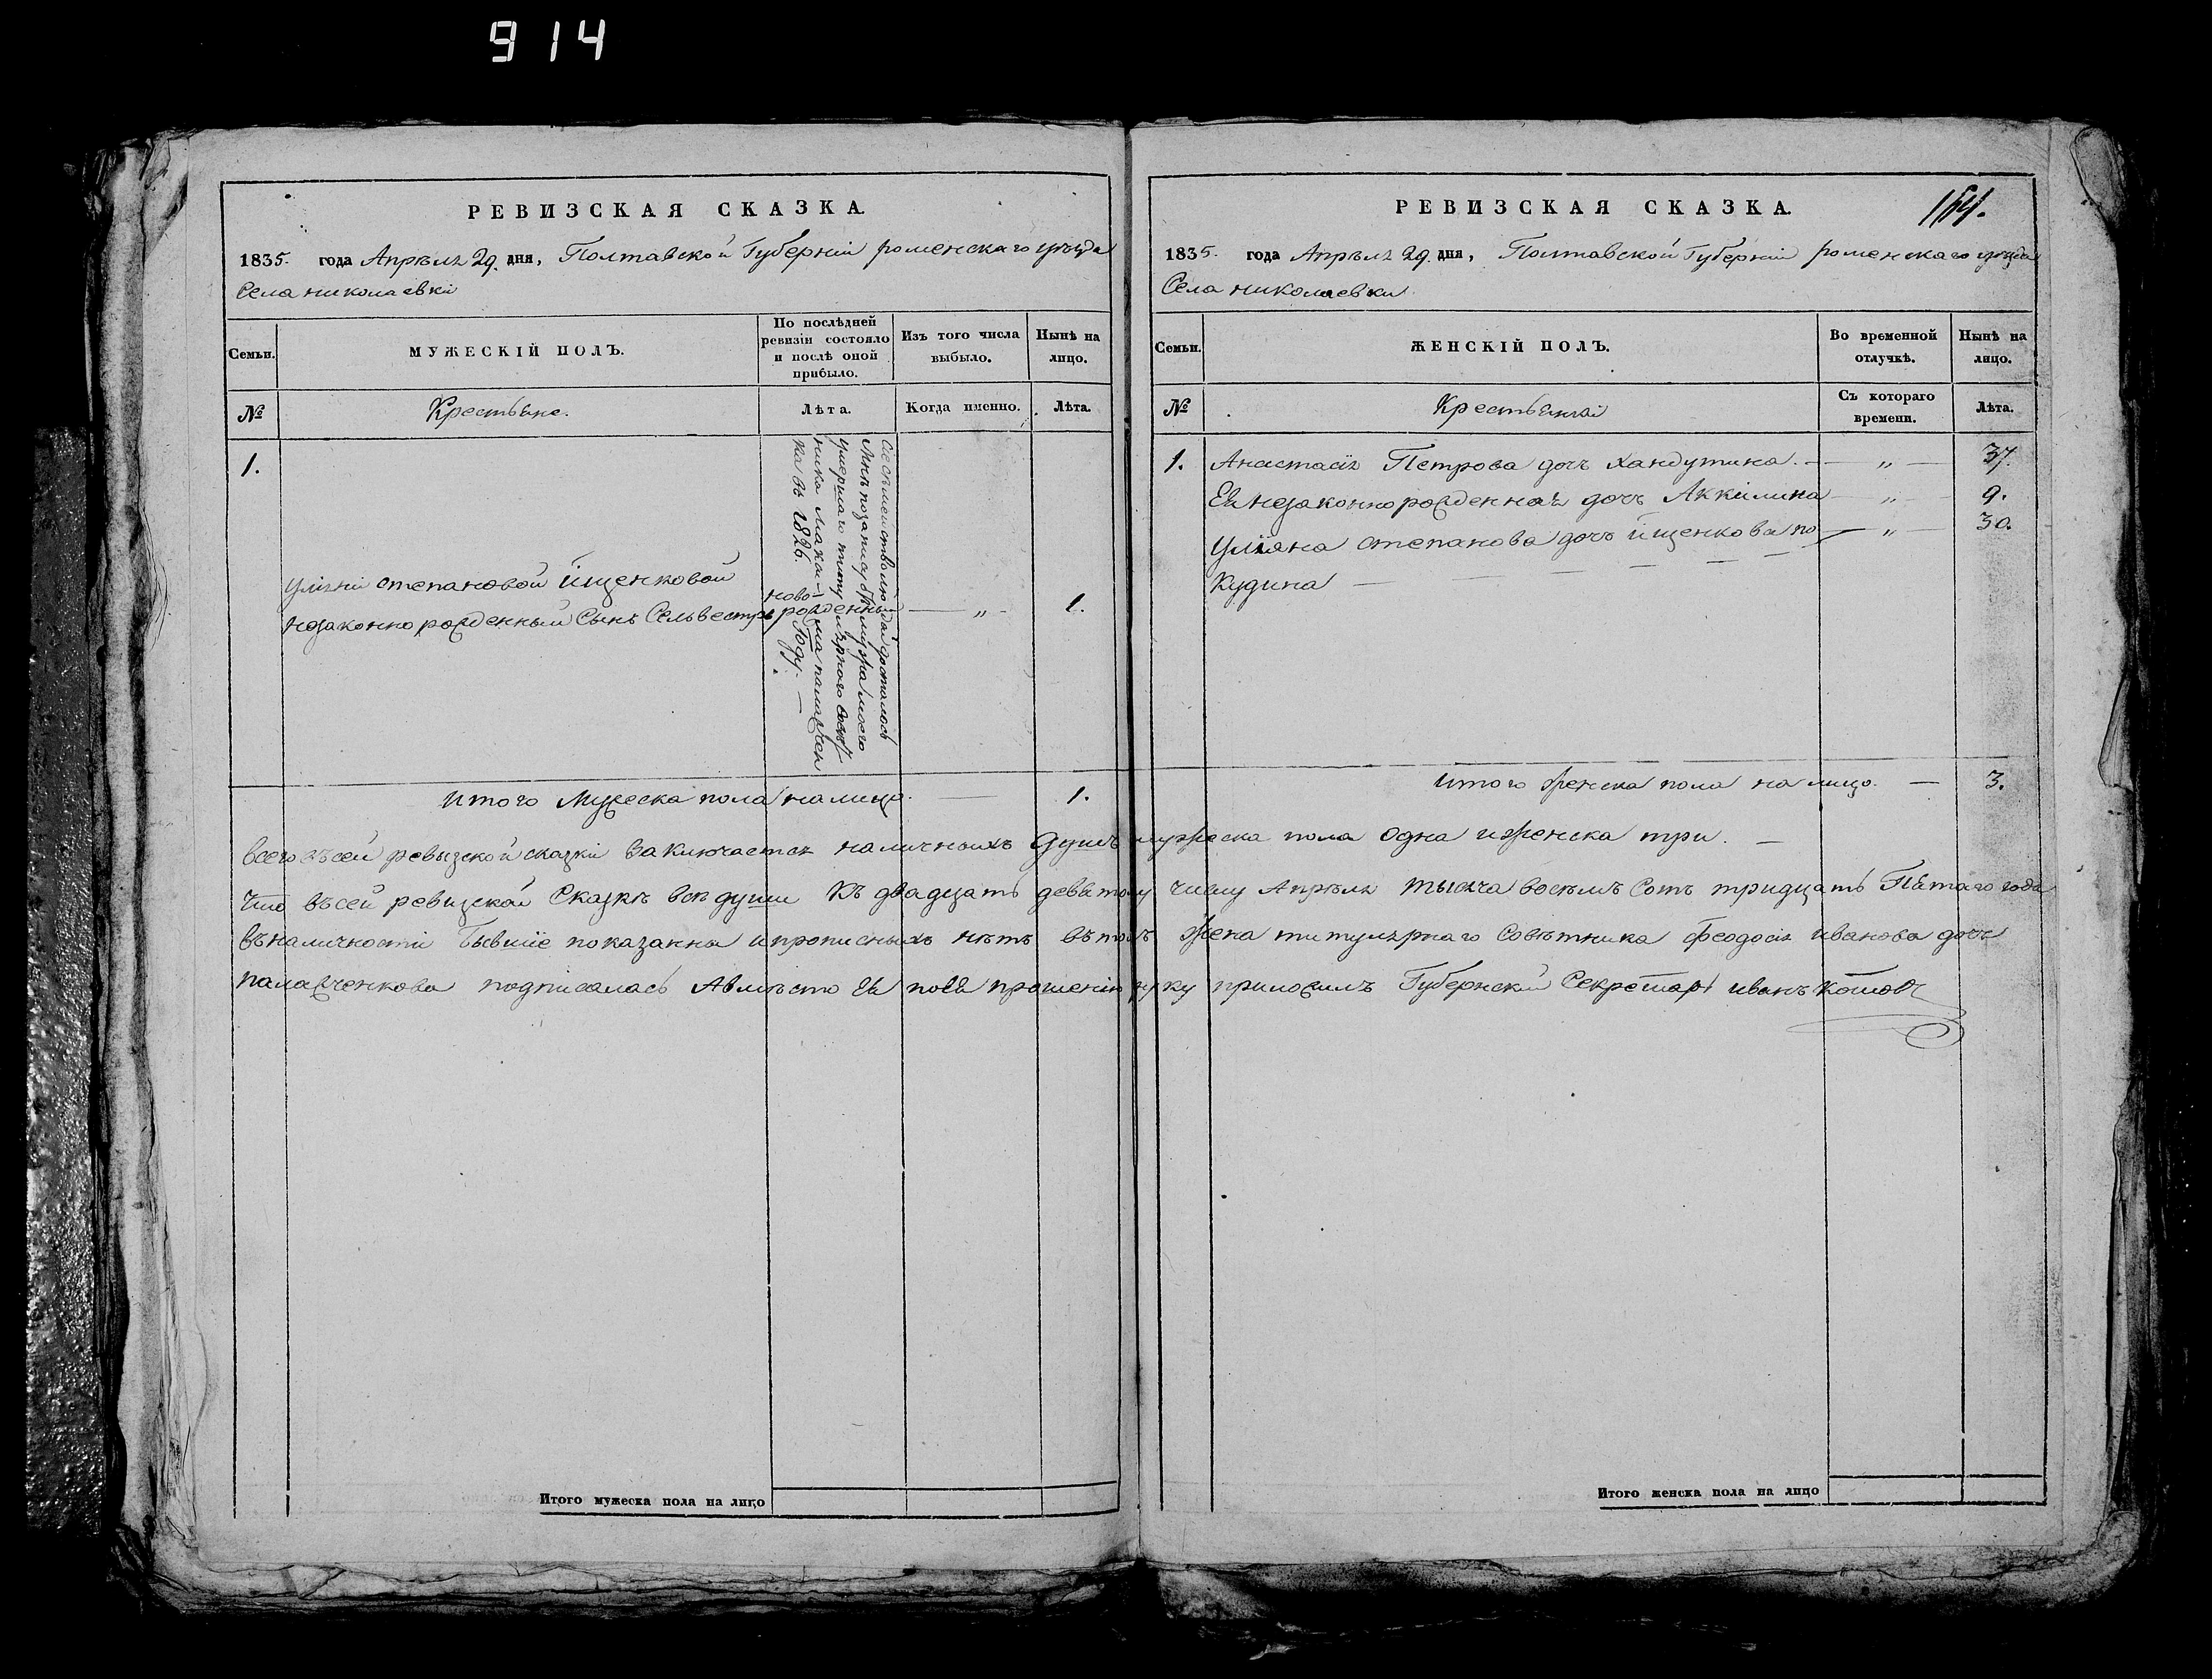 914
РЕВИЗСКАЯ СКАЗКА.
1835. года Апрѣля 29. дня, Полтавской Губерніи роменскаго уѣзда
Села николаевки
Семьи.
МУЖЕСКІЙ ПОЛЪ.
По послѣдней
ревизіи состояло
и послѣ оной
прибыло.
Изъ того числа
выбыло.
Нынѣ на
лицо.
№
Крестьяне.
Лѣта.
Когда именно.
Лѣта.
1.
Сіе семѣйство людей досталось
Мнѣ по запису отъ мужа моего
умершаго титулярного совѣт
ника
ка въ 1826. Году.
Уліяни степановой ищенковой
незаконно рожденный Сынъ Сельвестръ
ново-
рожденный — „ — 1.
Итого Мужеска пола налицо. — 1.
РЕВИЗСКАЯ СКАЗКА.
1835. года Апрѣля 29. дня, Полтавской Губерніи роменскаго уѣзда
Села николаевки
Семьи.
ЖЕНСКІЙ ПОЛЪ.
Во временной
отлучкѣ.
Нынѣ на
лицо.
№
Крестьянкаі
Съ котораго
времени.
Лѣта.
1. Анастасія Петрова дочь хандутина. — „ — 37.
Ея незаконнорожденная дочь Аккилина — „ — 9.
Уліяна степанова дочь ищенкова по — „ — 30.
Кудина —
итого женска пола на лицо. — 3.
всего въ сей ревызской сказкі заключается наличныхъ душъ мужеска пола одна и женска три. —
Что въ сей ревизской Сказкѣ всѣ души къ двадцать девятому числу Апрѣля тысяча восемъ Сотъ тридцать Пятаго года
въ наличности Бывшіе показанны ипрописныхъ нѣтъ въ томъ жена титулярнаго Совѣтника Феодосія иванова дочь
паламченкова подписалась Авмѣсто Ея поея прошенію руку приложилъ Губернскій Секретарь иванъ Котовъ
Итого мужеска пола на лицо
Итого женска пола на лицо